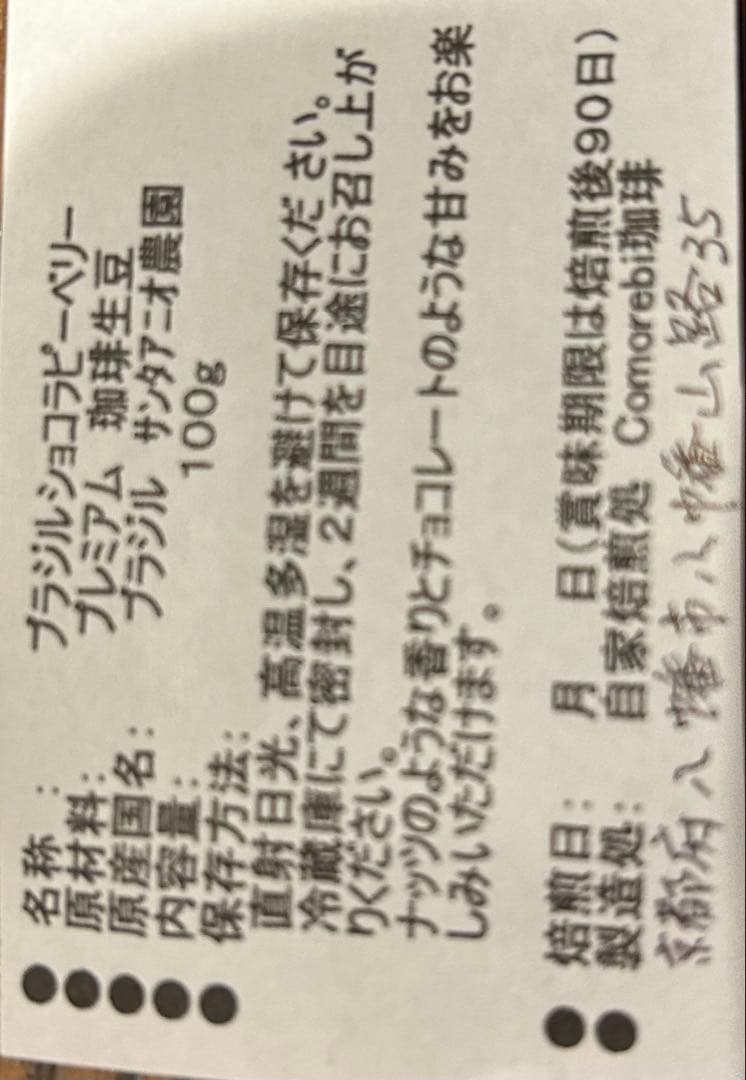 ●名称　：　ブラジルショコラピーベリー
●原材料：　プレミアム　珈琲生豆
●原産国名：　ブラジル　サンタアニオ農園
●内容量：　100g
●保存方法：
直射日光、高温多湿を避けて保存くだ さい。
冷蔵庫にて密封し、2週間を目途にお召し上が
りください。
ナッツのような香りとチョコレートのような甘みをお楽
しみいただけます。
●焙煎日：　月　日（賞味期限は焙煎後90日）
●製造処：　自家焙煎処　Comorebi珈琲
京都府八幡市八幡山路35